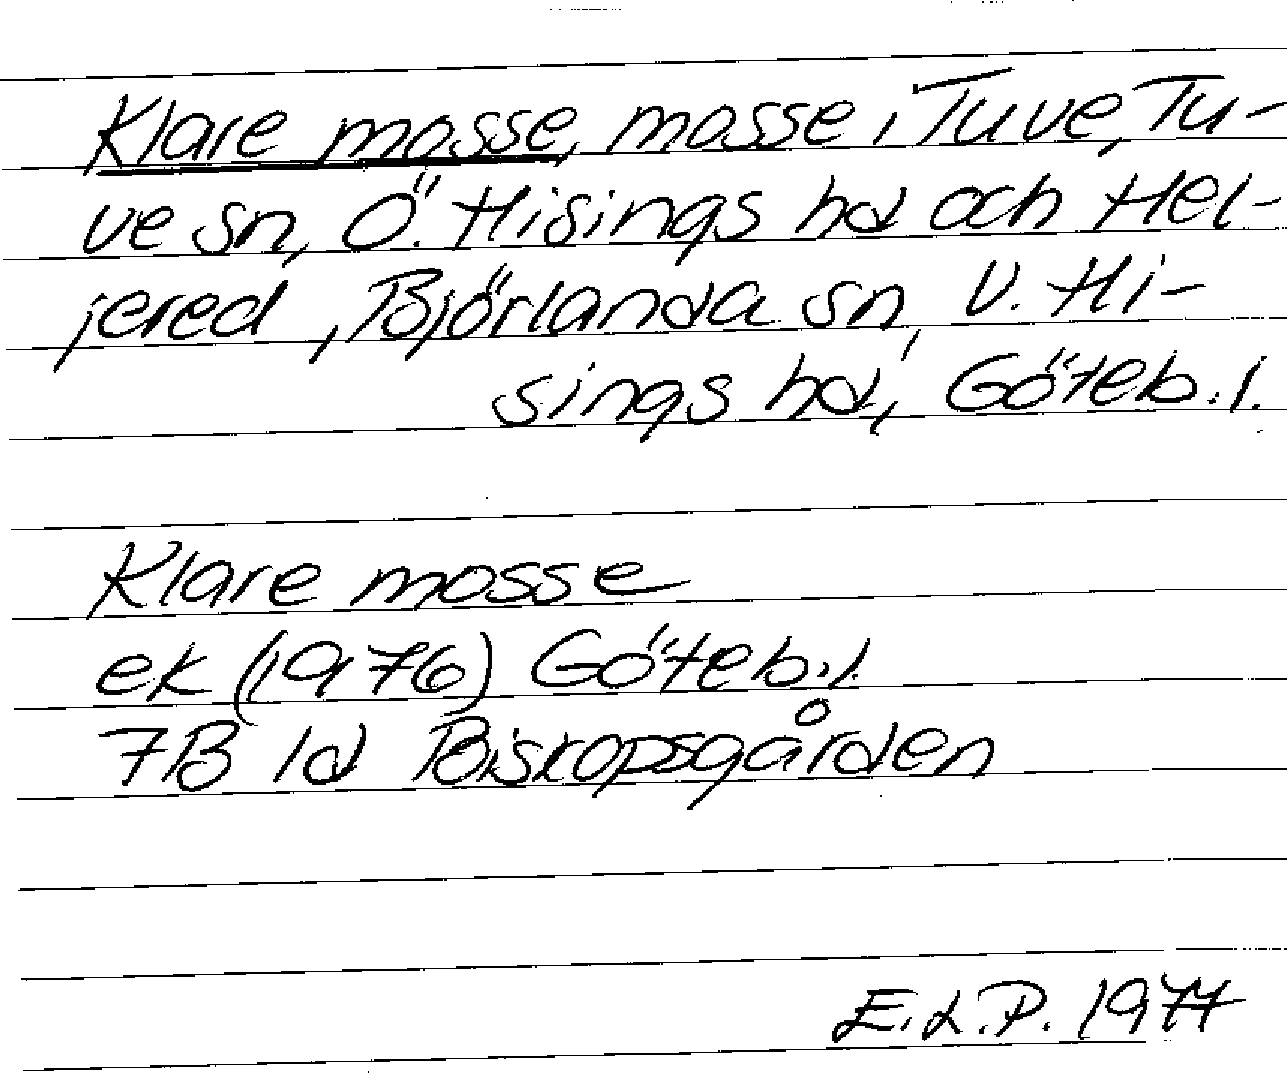 Klare mosse, mosse i Tuve, Tu-
ve sn, Ö. Hisings hd och Hel-
jered, Björlanda sn, V. Hi-
sings hd, Göteb. l.
Klare mosse
ek (1976) Göteb. l.
7B 1d Biskopsgården
E.L.P. 1977